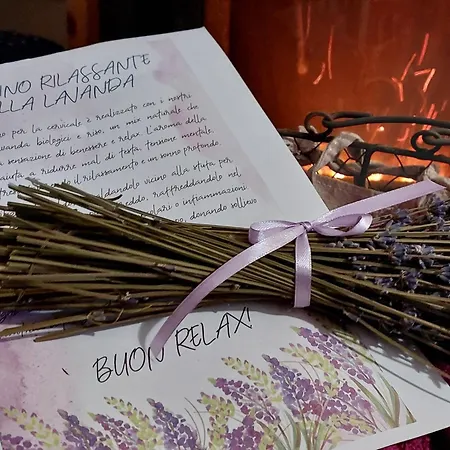 INO RILASSANTE
LLA LAVANDA
no per la cervicale è realizzato con i nostri
avanda biologici e riso, un mix naturale che
sensazione di benessere e relax. L'aroma della
aiuta a ridurre mal di testa, tensione mentale,
il rilassamento e un sonno profondo.
ldandolo vicino alla stufa, per
eddo, raffreddandolo nel
colari o infiammazioni
donando sollievo
BUON RELAX!